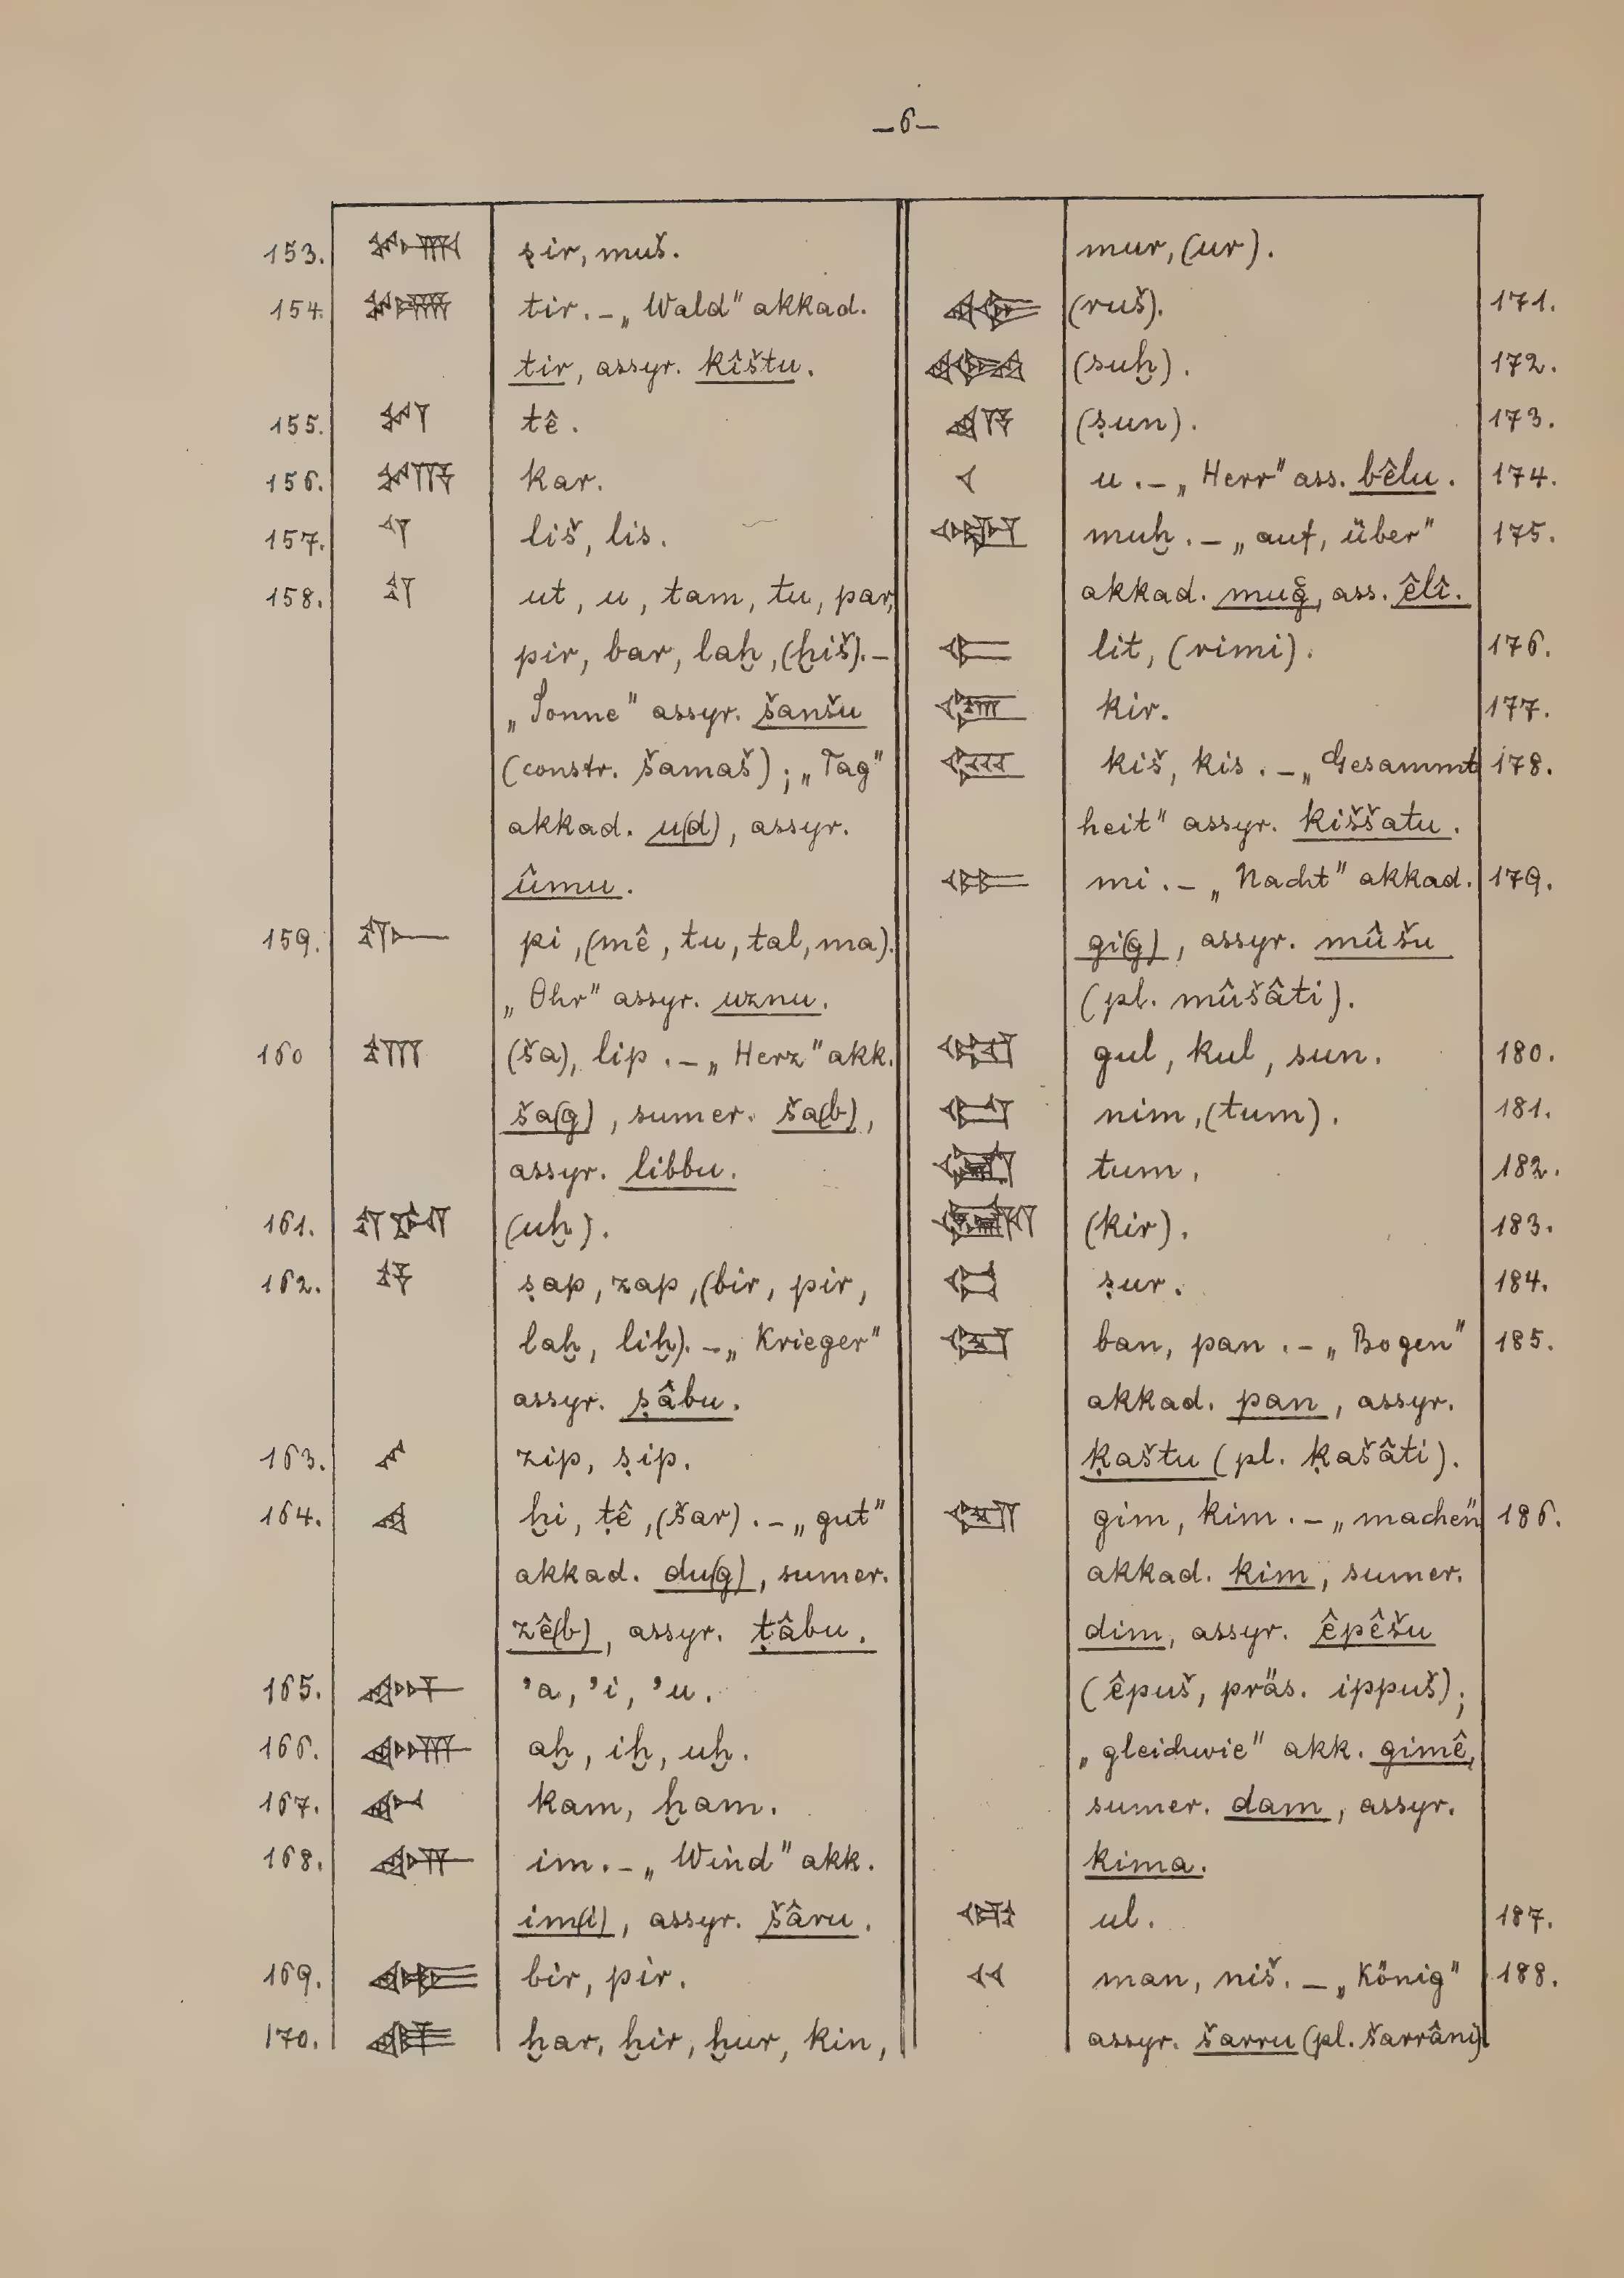 – 6 –
153. ṣir, muš.
154. tir. – „Wald" akkad.
tir, assyr. kîštu.
155. tê.
156. kar.
157. liš, lis.
158. ut, u, tam, tu, par,
pir, bar, laḫ, (ḫiš). –
„Sonne" assyr. šanšu
(constr. šamaš); „Tag"
akkad. u(d), assyr.
ûmu.
159. pi, (mê, tu, tal, ma).
„Ohr" assyr. uznu.
160 (ša), lip. – „Herz" akk.
ša(g), sumer. ša(b),
assyr. libbu.
161. (uḫ).
162. ṣap, zap, (bir, pir,
laḫ, liḫ). – „Krieger"
assyr. ṣâbu.
163. zip, ṣip.
164. ḫi, ṭê, (šar). – „gut"
akkad. du(g), sumer.
zê(b), assyr. ṭâbu.
165. ʾa, ʾi, ʾu.
166. aḫ, iḫ, uḫ.
167. kam, ḫam.
168. im. – „Wind" akk.
im(i), assyr. šâru.
169. bir, pir.
170. ḫar, ḫir, ḫur, kin,
mur, (ur).
𒄭 (ruš). 171.
(suḫ). 172.
(ṣun). 173.
𒌋 u. – „Herr" ass. bêlu. 174.
muḫ. – „auf, über" 175.
akkad. muğ, ass. êlî.
lit, (rimi). 176.
kir. 177.
kiš, kis. – „Gesammt 178.
heit" assyr. kiššatu.
mi. – „Nacht" akkad. 179.
gi(g), assyr. mûšu
(pl. mûšâti).
gul, kul, sun. 180.
nim, (tum). 181.
tum. 182.
(kir). 183.
ṣur. 184.
ban, pan. – „Bogen" 185.
akkad. pan, assyr.
ḳaštu (pl. ḳašâti).
gim, kim. – „machen" 186.
akkad. kim, sumer.
dim, assyr. êpêšu
(êpuš, präs. ippuš);
„gleichwie" akk. gimê,
sumer. dam, assyr.
kima.
ul. 187.
man, niš. – „König" 188.
assyr. šarru (pl. šarrâni).